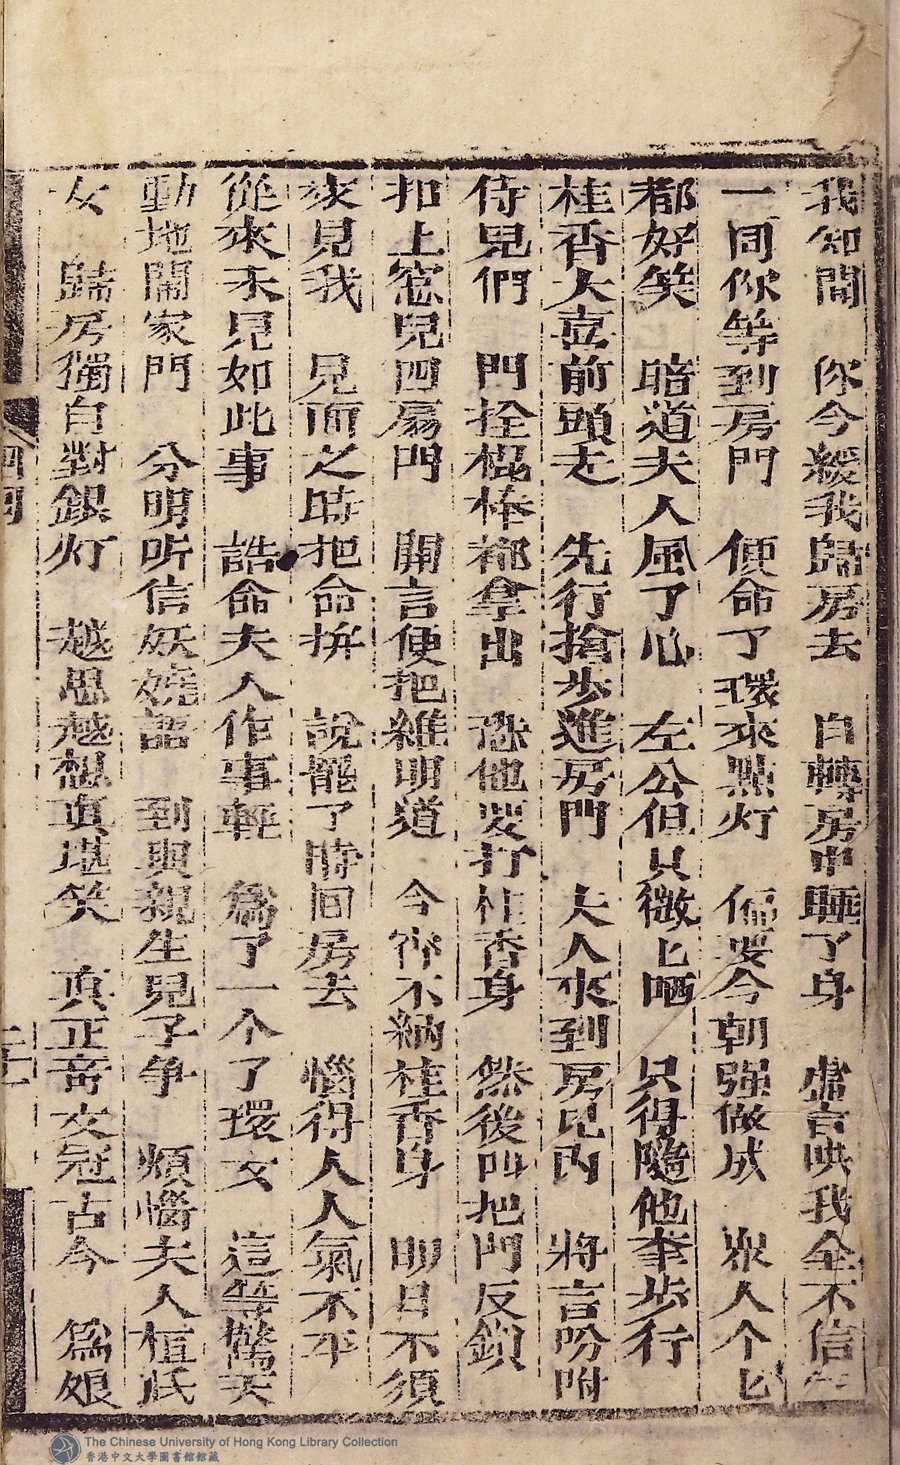 我知聞　你今緩我歸房去　自轉房中睡了身　虛言哄我全不信
一同你等到房門　便命了環來點灯　偏要今朝强做成　眾人个匕
都好笑　暗道夫人風了心　左公但只微匕哂　只得隨他奉步行
桂香大喜前頭走　先行搶步進房門　夫人來到房兒內　將言吩咐
侍兒們　門拴棍棒都拿出　恐他要打桂香身　然後叫把門反鎖
扣上窓兒四扇門　開言便把維明道　今宵不納桂香身　明日不須
來見我　見面之時把命拚　說罷了時回房去　惱得人人氣不平
從來未見如此事　誥命夫人作事輕　爲了一个了環女　這等驚天
動地鬧家門　分明听信妖嬈語　到與親生兒子争　煩惱夫人桓氏
女　歸房獨自對銀灯　越思越想真堪笑　真正奇文冠古今　爲娘
四回
The Chinese University of Hong Kong Library Collection
香港中文大學圖書館館藏